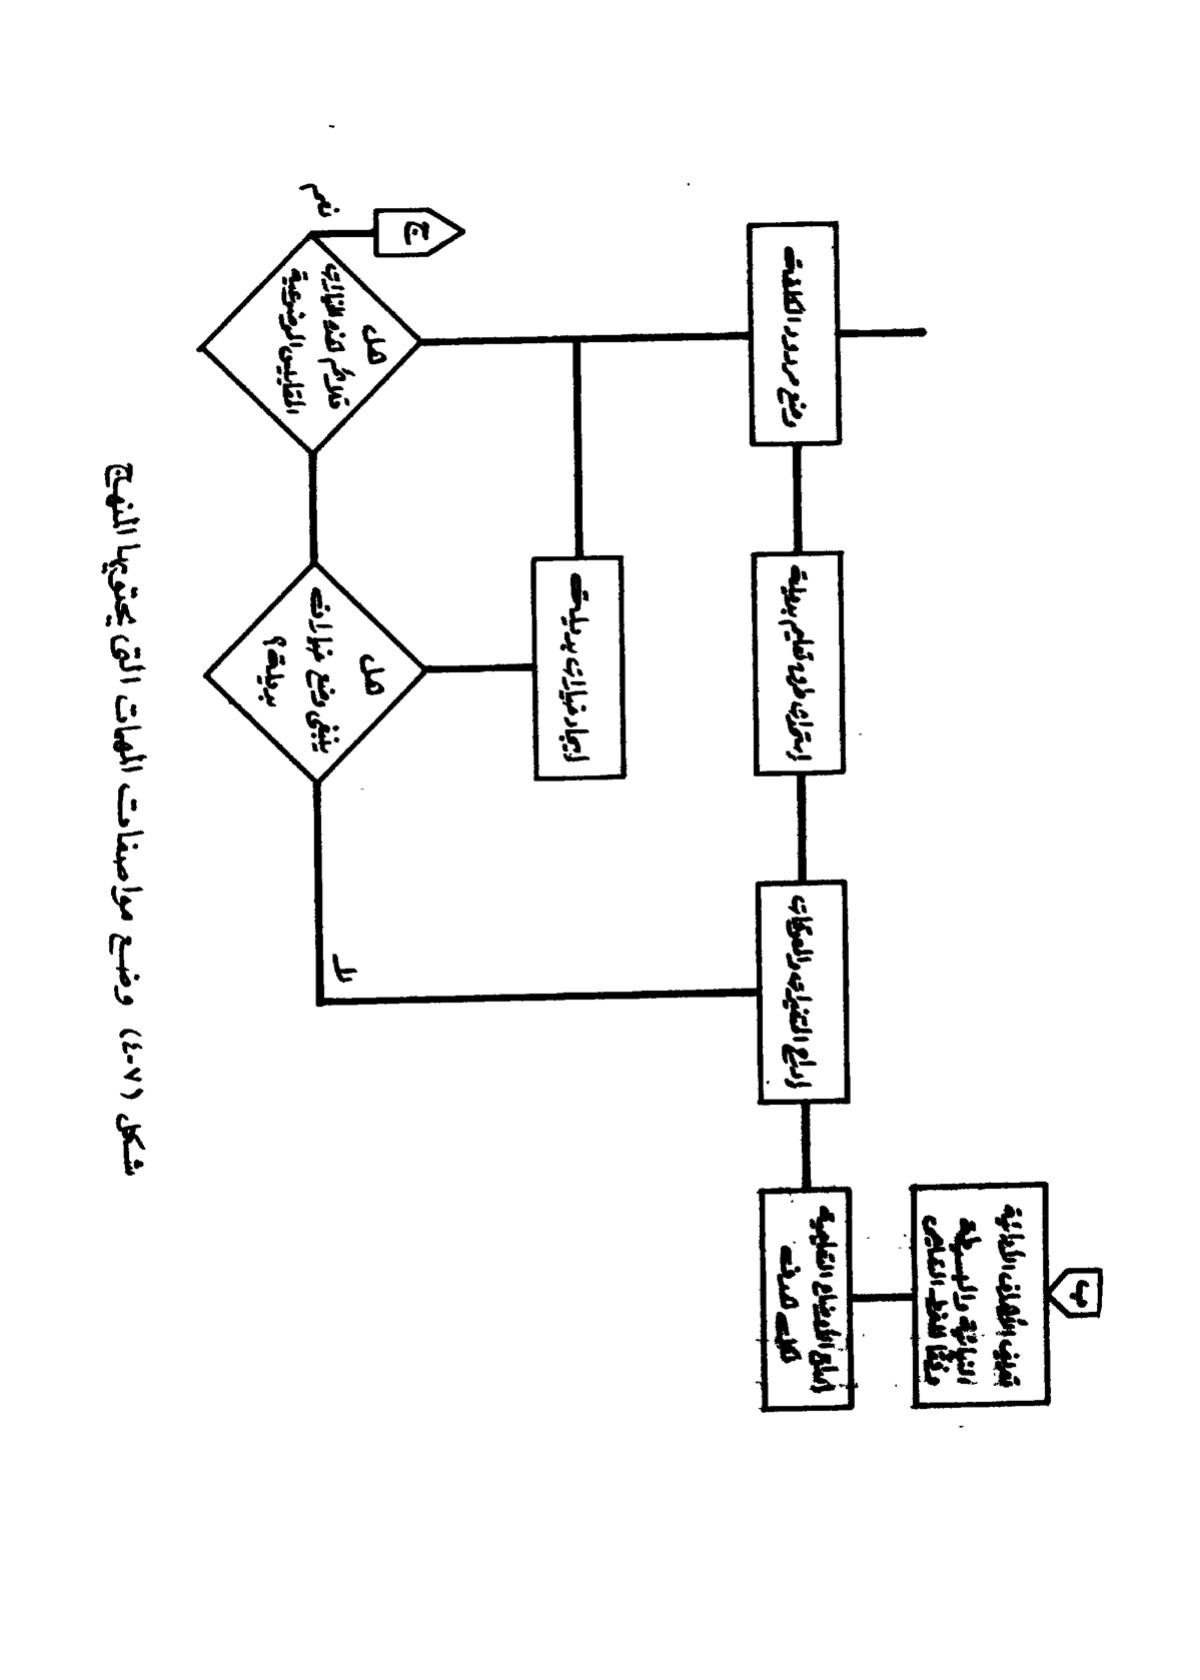 ب
تعريف الأهداف النهائية
النهائية والبسيطة
وفقًا للنمط الخاص
إنتاج الأوضاع التعليمية
لكل هدف
إدماج المتغيرات والمعوقات
إستراتيجيات تعليم بديلة
وضع حدود الكلفة
إيجاد خيارات بديلة
هل
ينبغي وضع خيارات
بديلة؟
لا
هل
تلائم هذه الخيارات
المقاييس الموضوعية
نعم
ج
شكل (٧-٤) وضع مواصفات المهمات التي يحتويها المنهج